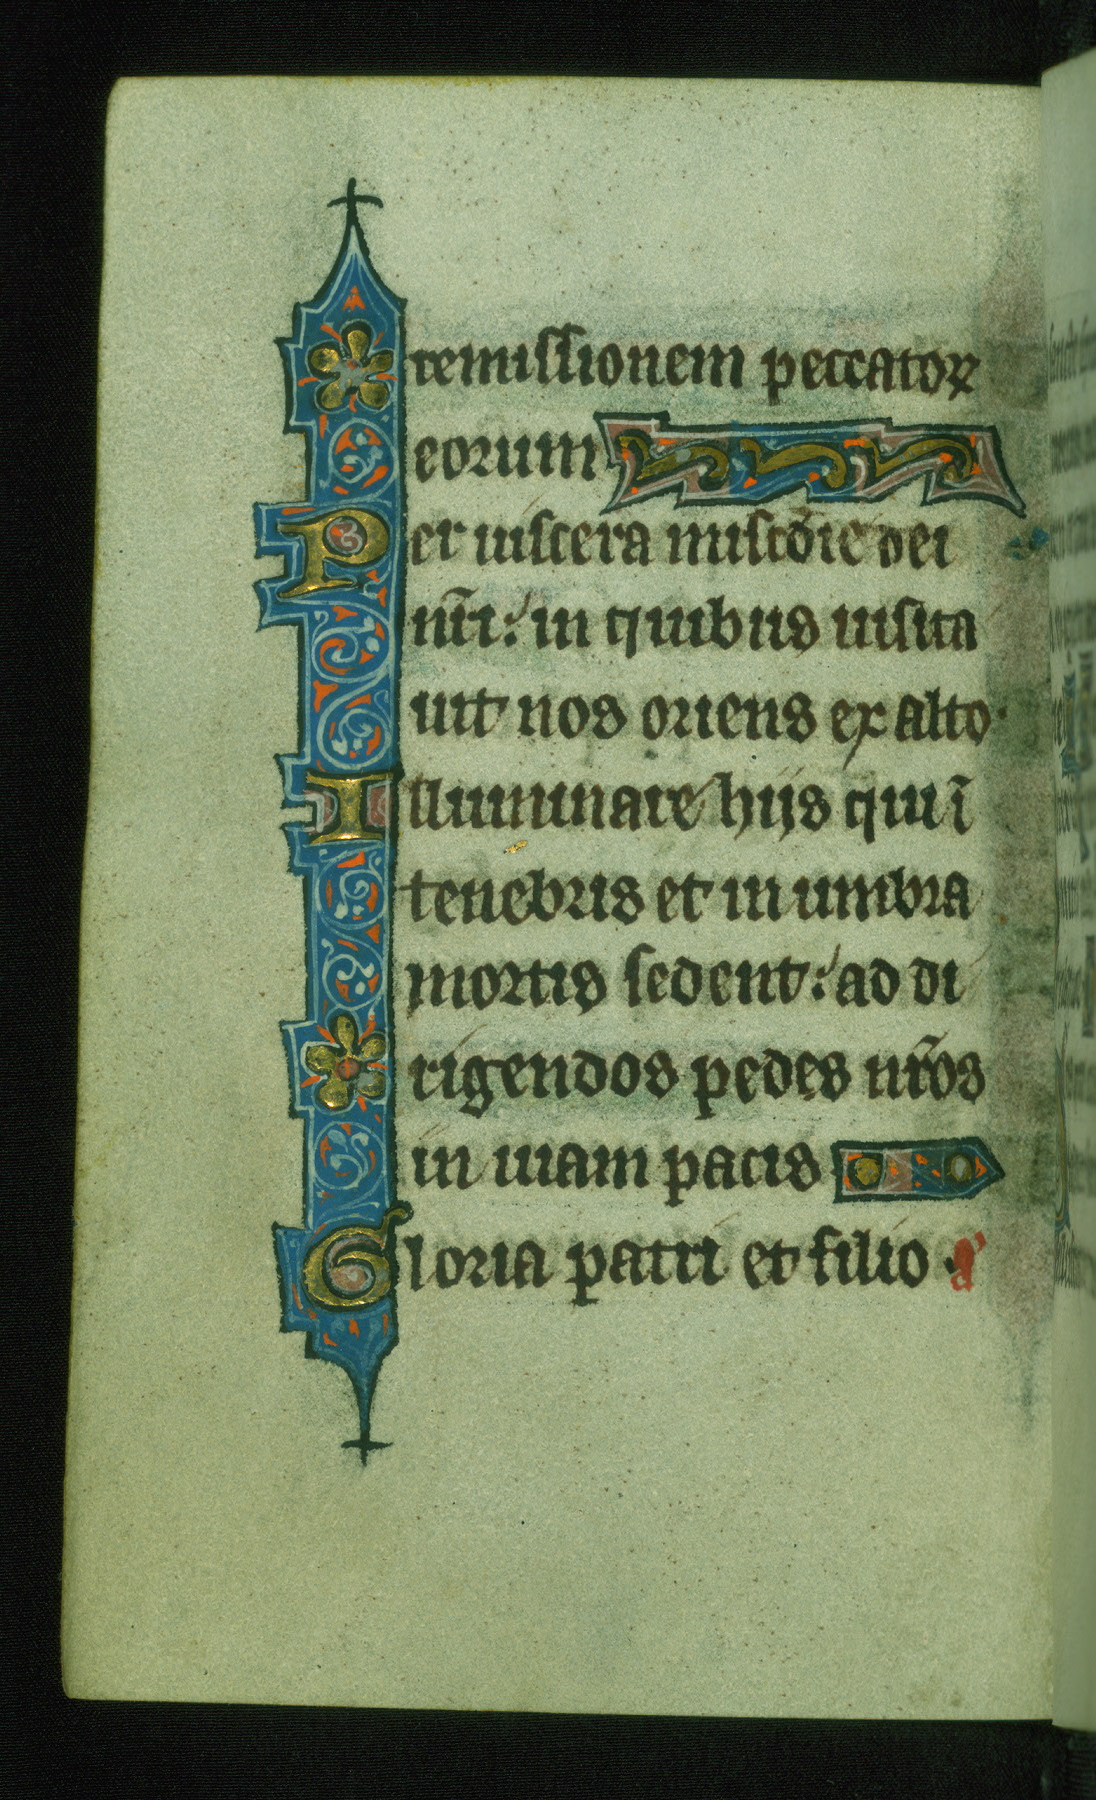 remissionem peccatoꝝ
eorum
Per uiscera misc̄die dei
nr̄i: in quibus uisita
uit nos oriens ex alto.
Illuminare hijs qui ī
tenebris et in umbra
mortis sedent: ad di
rigendos pedes nr̄os
in uiam pacis
Gloria patri et filio. aͬ